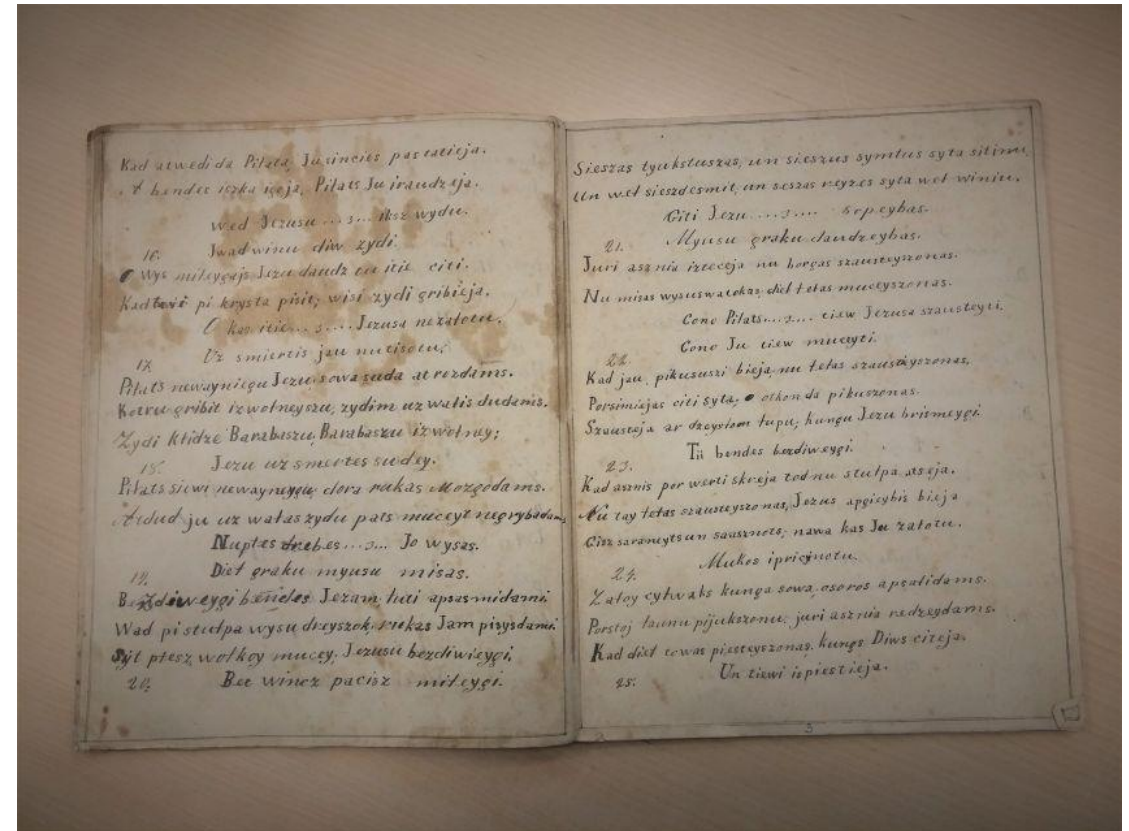 Kad atwedi da Piłata, Ju sincies pastatieja.
A bendes iszka igoja, Piłats Ju iraudzeja.
wed Jezusu ... s ... iksz wydu.
Jwad winu diw zydi.
16.
O Wys miłeygajs Jezu daudz tu itie citi.
Kad tevi pi krysta pisit; wisi zydi gribieja.
O kas itie ... s .... Jezusa nezałotu.
Uz smiertis jau nutisotu;
17.
Piłats newayniegu Jezu, sowa suda atrozdams.
Kotru gribit izwolneyszu, zydim uz walis dudams.
Zydi klidze Barabaszu, Barabaszu izwolnuy;
18. Jezu uz smertes sudey.
Piłats siewi newayneygu, clora rukas Mozgodams.
Atdud ju uz wałas zydu pats muceyt negrybadams
Nuptes drebes ... s ... Jo wysas.
19. Dieł graku myusu misas.
Bezdiweygi bendes Jezam luti apsasmidami.
Wad pi stułpa wysu dreyszok, rukas Jam pisysdami.
Syt płesz, wołkoy mucey, Jezusu bezdiwieygi,
20. Bet wincz pacisz miłeygi.
Sieszas tyukstuszas, un sieszus symtus syta sitimu,
Un wet sieszdesmit, un seszas reyzes syta wet winiu.
Giti Jezu .... s .... srpeybas.
21. Myusu graku daudzeybas.
Juri asznia izteceja nu borgas szausteyszonas.
Nu misas wysus wałokas, dieł tetas muceyszonas.
Cone Piłats .... s .... tiew Jezusa szausteyti.
Cone Ju tiew muceyti.
22.
Kad jau, pikususzi bieja, nu tetas szausteyszonas,
Porsimiejas citi syta, otkon da pikuszonas.
Szausteja ar dzeysłom tupu, kungu Jezu brismeygi.
Tii bendes bezdiweygi.
23.
Kad asznis por werti skreja tod nu stułpa atseja.
Nu tay tetas szausteyszonas, Jezus apgieybis bieja
Cisz saraneytsun saasznots, nawa kas Ju załotu.
Mukos ipriejnotu.
24.
Załoy cylwaks kunga sowa, osoros apsalidams.
Porstoj launu pijukszonu, juri asznia redzeydams.
Kad dieł tewas piesteyszonas, kungs Diws citeja.
25. Un tiewi ispiestieja.
5